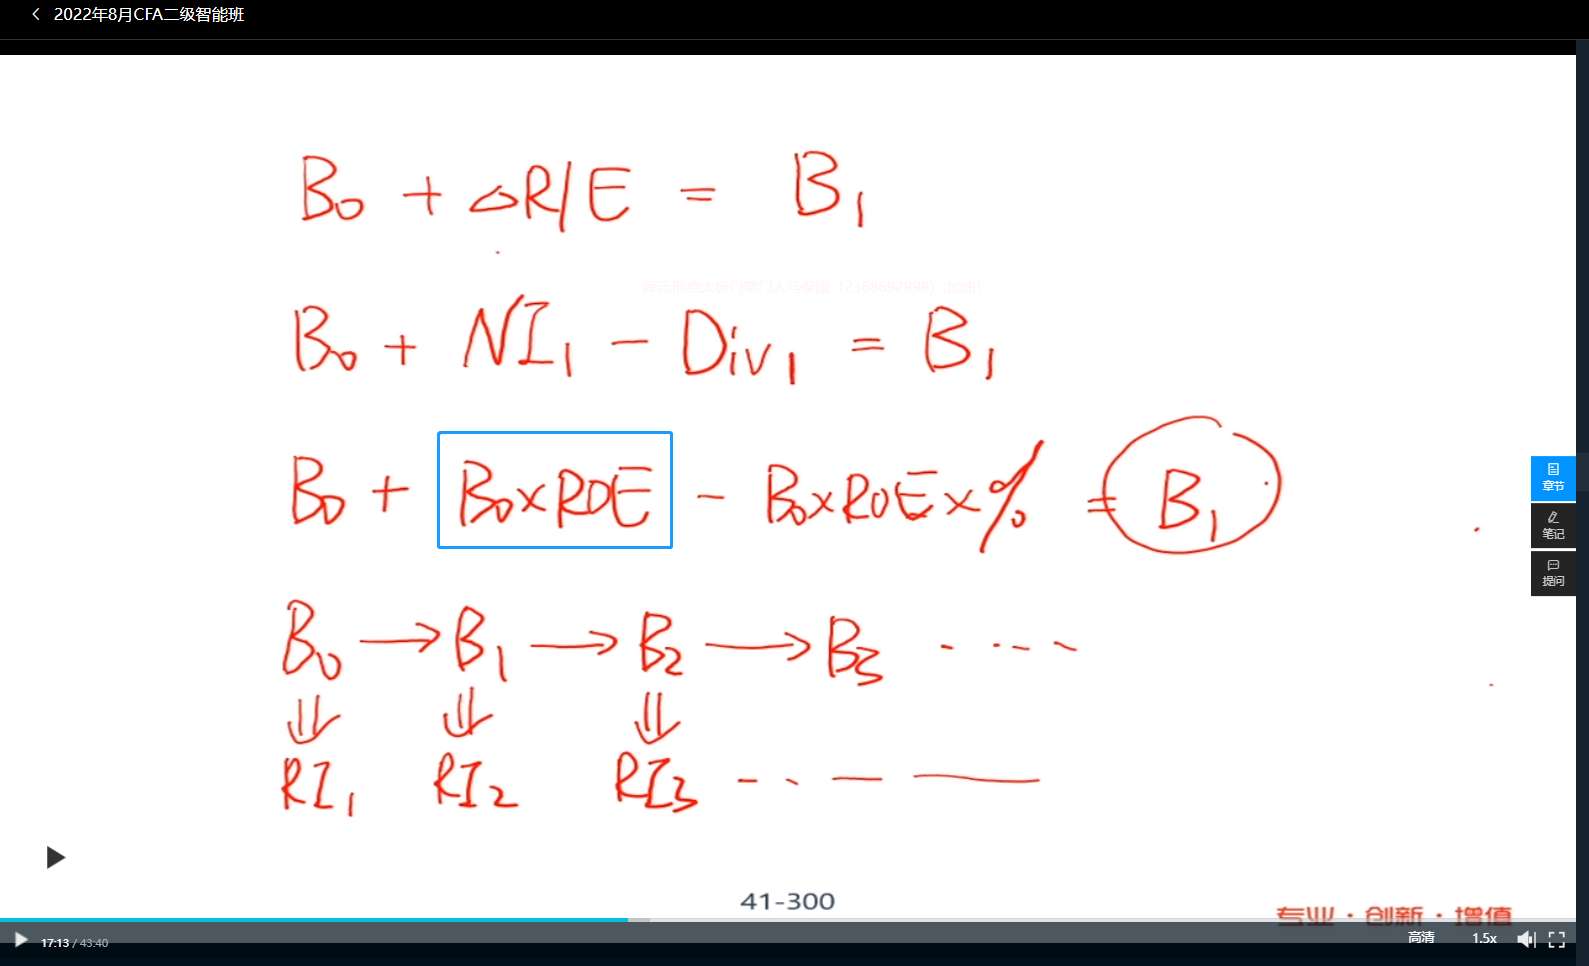 2022年8月CFA二级智能班
B₀ + △R/E = B₁
B₀ + NI₁ - Div₁ = B₁
B₀ + B₀×ROE - B₀×ROE×% = B₁
B₀ → B₁ → B₂ → B₃ ····
⇓ ⇓ ⇓
RI₁ RI₂ RI₃ ----
章节
笔记
提问
41-300
专业·创新·增值
17:13 / 43:40
高清
1.5x